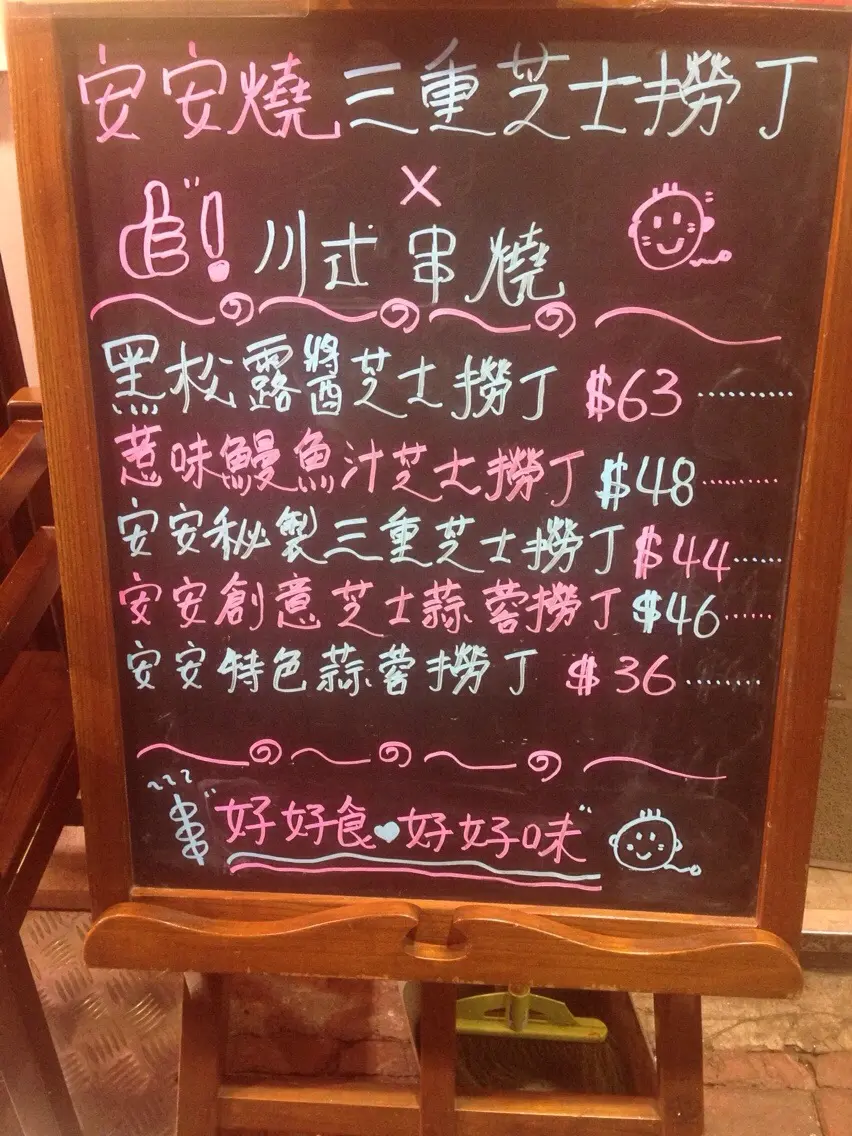 安安燒三重芝士撈丁
×
川式串燒
黑松露醬芝士撈丁 $63 ..........
惹味鰻魚汁芝士撈丁 $48 ........
安安秘製三重芝士撈丁 $44 ......
安安創意芝士蒜蓉撈丁 $46 ......
安安特色蒜蓉撈丁 $36 ........
串 好好食♥好好味